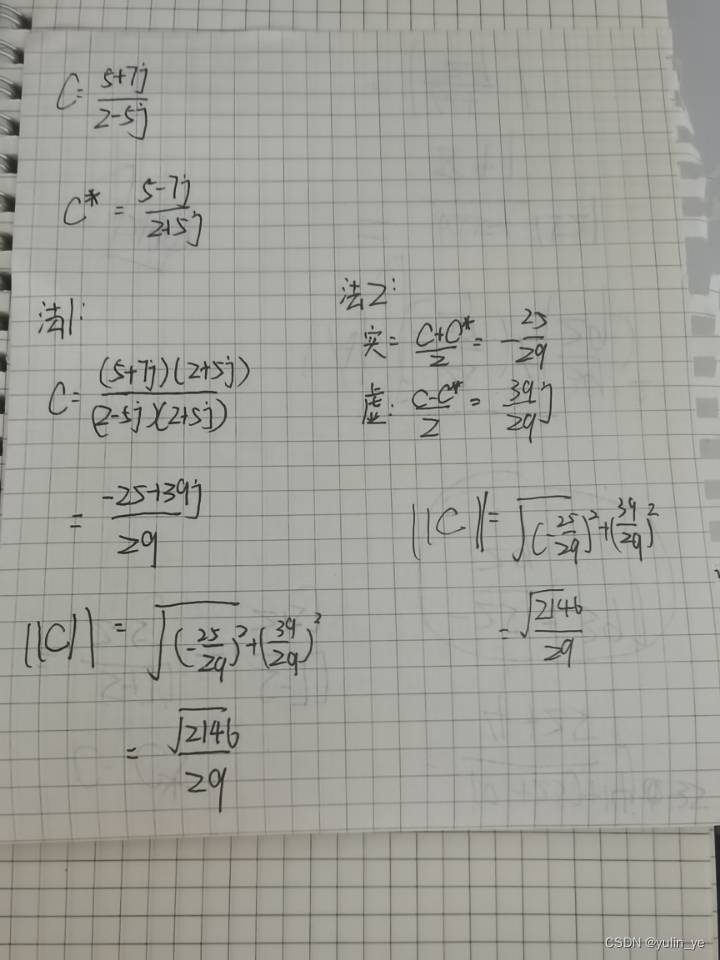 C = \frac{5+7j}{2-5j}
C* = \frac{5-7j}{2+5j}
法1:
C = \frac{(5+7j)(2+5j)}{(2-5j)(2+5j)}
= \frac{-25+39j}{29}
||C|| = \sqrt{(-\frac{25}{29})^2+(\frac{39}{29})^2}
= \frac{\sqrt{2146}}{29}
法2:
实 = \frac{C+C*}{2} = -\frac{25}{29}
虚: \frac{C-C*}{2} = \frac{39}{29}j
||C|| = \sqrt{(-\frac{25}{29})^2+(\frac{39}{29})^2}
= \frac{\sqrt{2146}}{29}
CSDN @yulin_ye